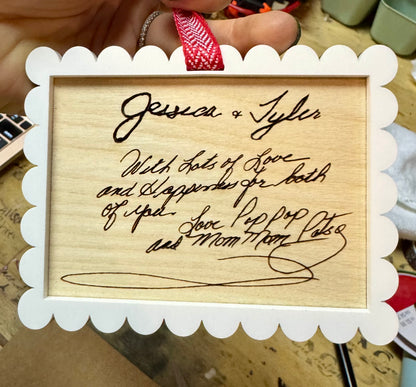 Jessica & Tyler
With Lots of Love
and Happiness for both
of you.
Love Pop Pop
and Mom Mom Pats